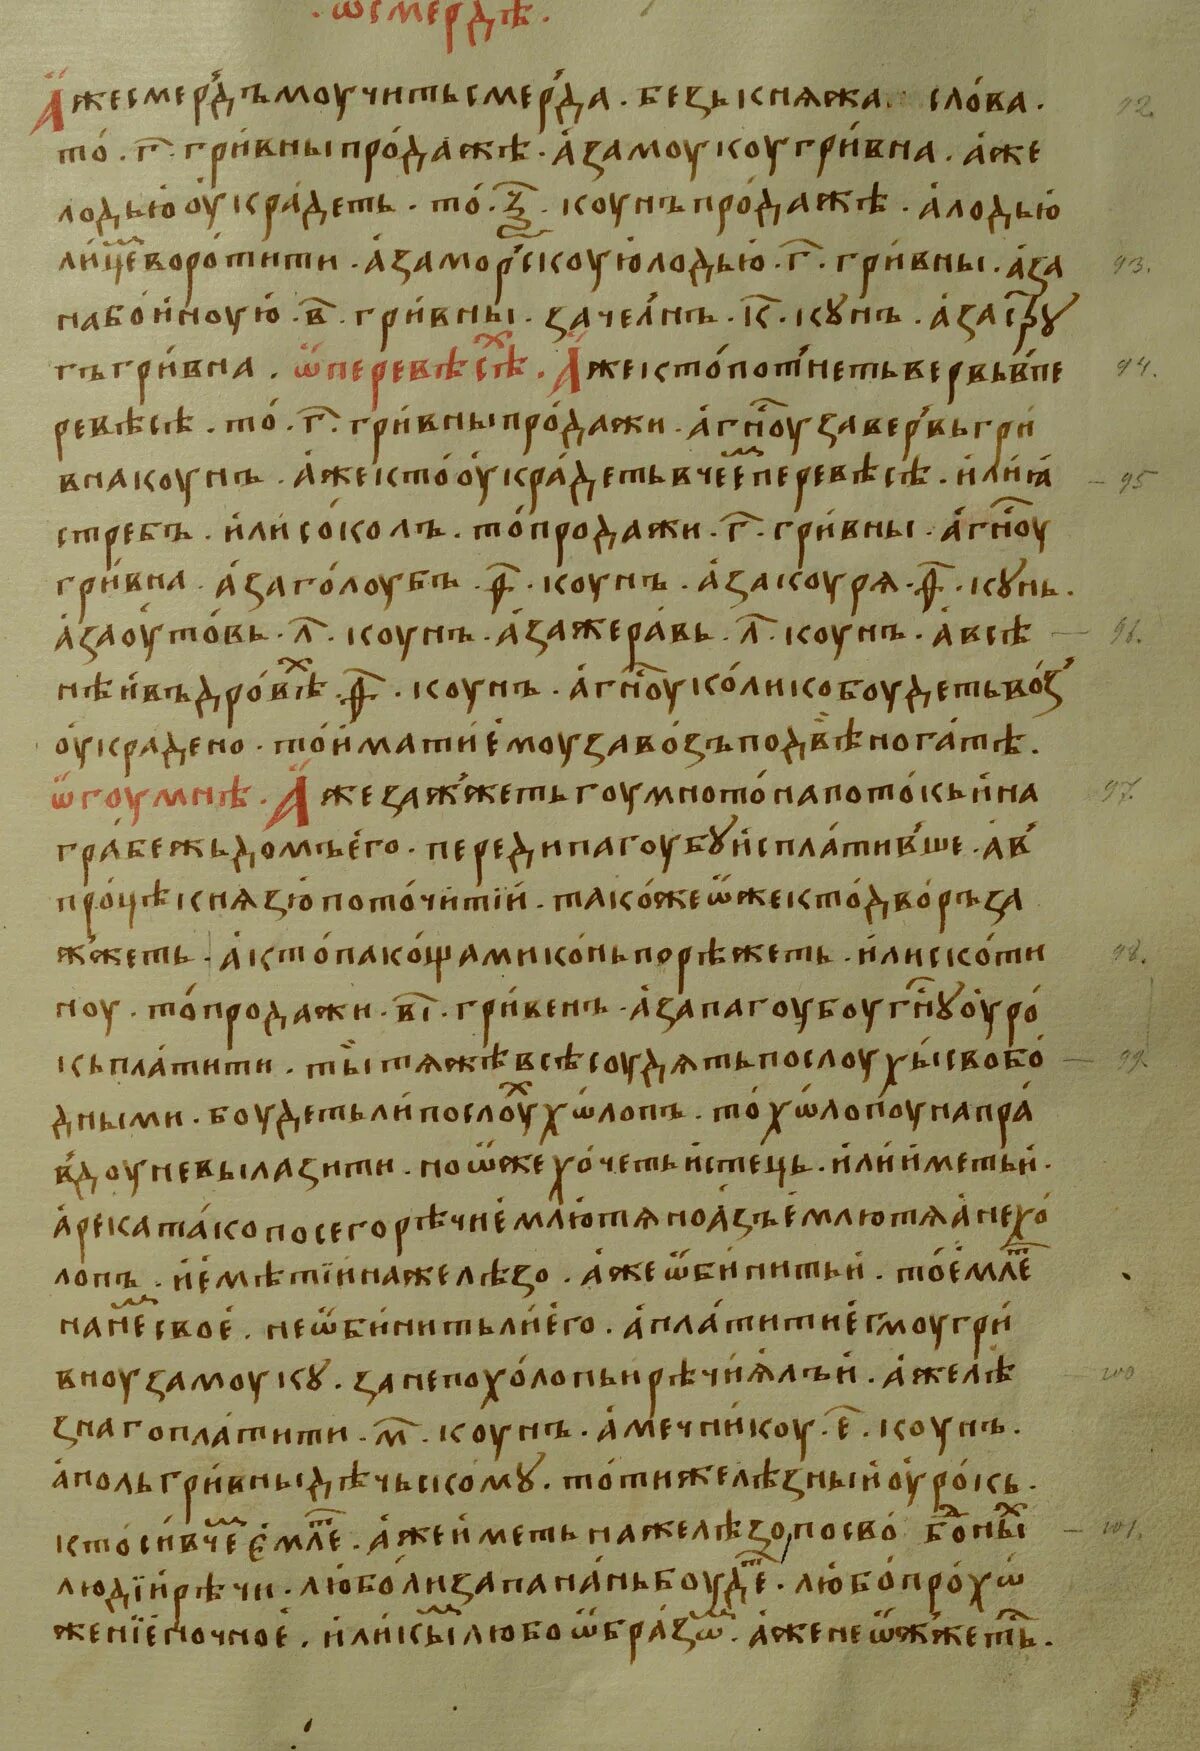 . ѿ смердѣ .
Аже смердъ моучить смерда . безъ княжа слова . 92.
то . г҃ . гривны продажѣ . а за моукоу гривна . аже
лодью оукрадеть . то . ѯ҃ . коунъ продажѣ . а лодью
лицемъ воротити . а за морьскоую лодью . г҃ . гривны . а за 93.
набоиноую . в҃ . гривны . за челнъ . к҃ . кꙋнъ . а за стрꙋ
гъ гривна . ѿ перевѣсѣх . Аже кто потнеть вервь в пе 94.
ревѣсѣ . то . г҃ . гривны продажи . а гн҃оу за вервь гри
вна коунъ . аже кто оукрадеть в чьемъ перевѣсѣ . или ꙗ 95
стребъ . или соколъ . то продажи . г҃ . гривны . а гн҃оу
гривна . а за голоубъ . ф҃ . коунъ . а за коуря . ф҃ . кꙋнь .
а за оутовь . л҃ . коунъ . а за жеравь . л҃ . коунъ . а в сѣ 96.
нѣ и въ дровѣх . ф҃ . коунъ . а гн҃оу колико боудеть воз
оукрадено . то имати емоу за возъ по двѣ ногатѣ .
ѿ гоумнѣ . Аже зажжеть гоумно то на потокъ и на 97.
грабежь домъ его . переди пагоубꙋ исплатившe . а в
процѣ князю поточити и . такоже ѡже кто дворъ за
жжеть . а кто пакощами конь порѣжеть . или скоти 98.
ноу . то продажи . в҃і . гривенъ . а за пагоубоу гн҃ꙋ оуро
къ платити . ты тяжѣ всѣ соудять послоухы свобо 99.
дными . боудеть ли послоух хѡлопъ . то хѡлопоу на пра
вдоу не вылазити . но ѡже хочеть истець . или иметь и .
а река тако по сего рѣчи емлю тя но азъ емлю тя а не хо
лопъ . и емѣти и на желѣзо . аже ѡбинить и . то емлет
на немъ свое . не ѡбинить ли его . а платити емоу гри
вноу за моукꙋ . зане по холопьи рѣчи ялъ и . а желѣ 100
знаго платити . м҃ . коунъ . а мечникоу . е҃ . коунъ .
а полъ гривны дѣчьскомꙋ . то ти желѣзный оурокъ .
кто си в чемъ емлет . аже иметь на желѣзо по свободных 101.
людїи рѣчи . любо ли запа нань боудет . любо прохѡ
женїе ночное . или кымъ любо ѡбразѡм . аже не ѡжжеть .